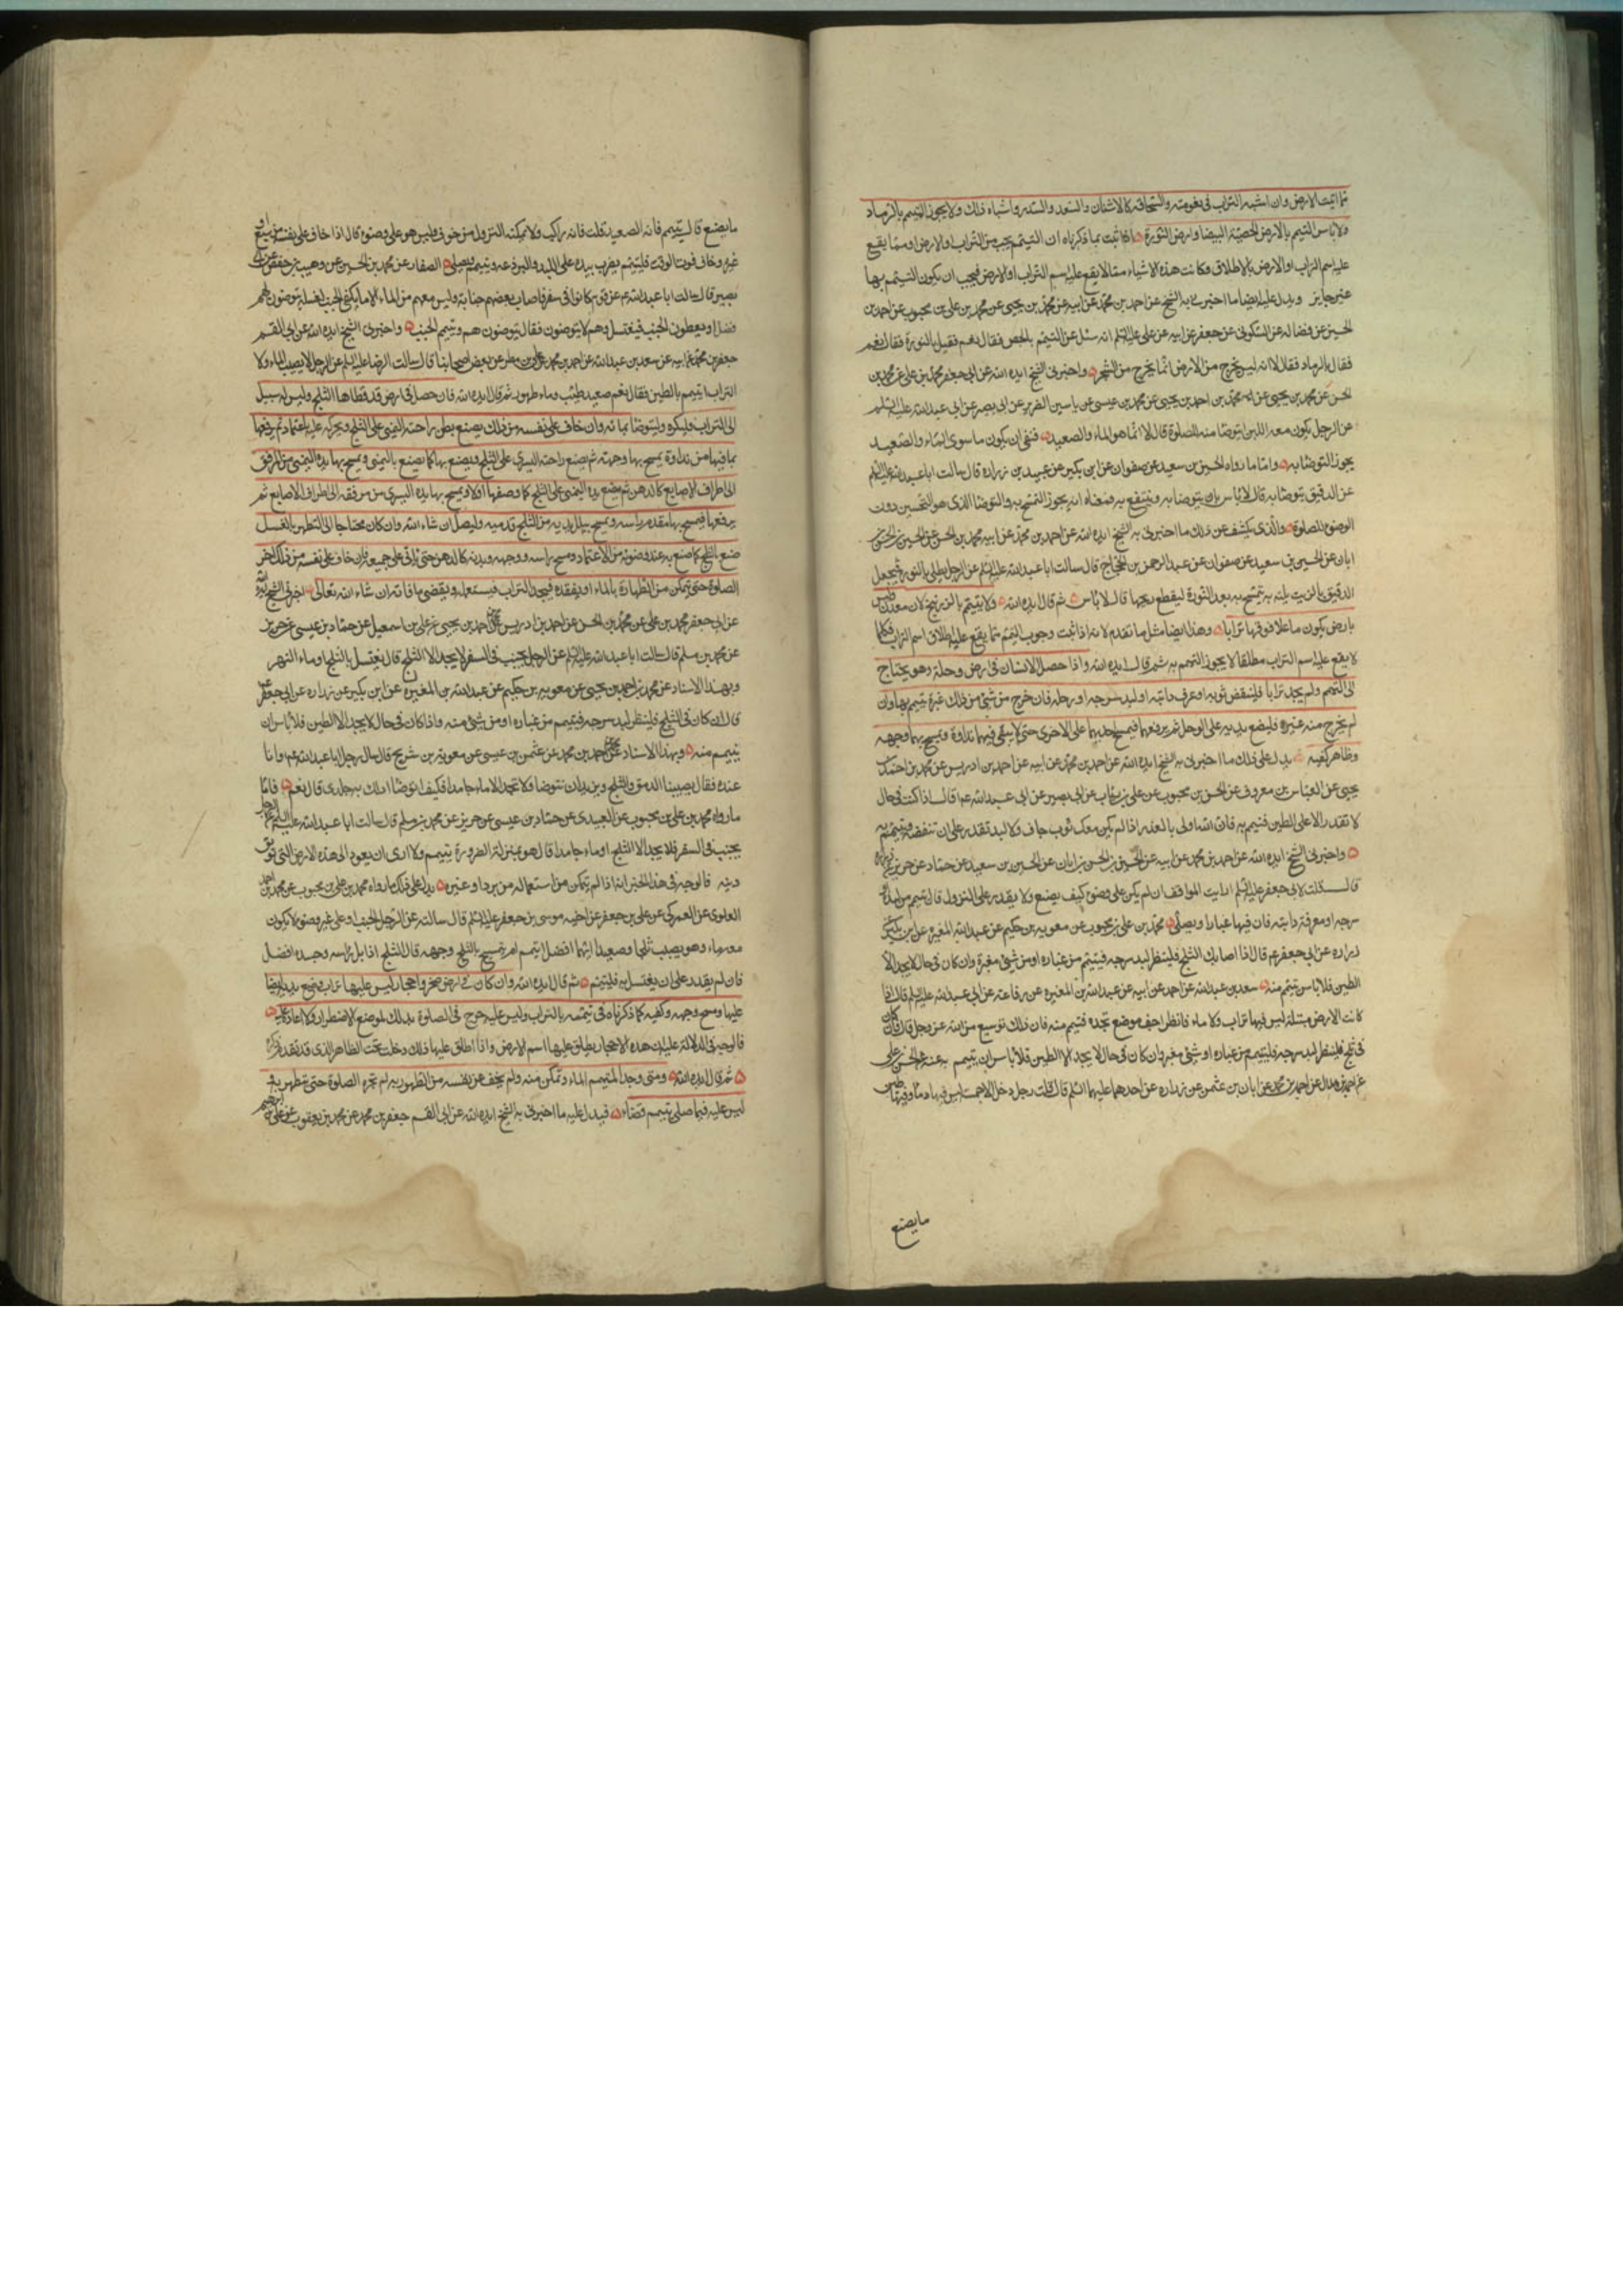 مما انبت الارض وان اشبه التراب فى نعومته وانسحاقه كالاشنان والسعد والسدر واشباه ذلك ولا يجوز التيمم بالرماد
ولا باس بالتيمم بالارض الجصية البيضا وارض النورة اذا ثبت بما ذكرناه ان التيمم يجب من التراب او الارض او مما يقع
عليه اسم التراب او الارض بالاطلاق وكانت هذه الاشياء مما لا يقع عليه اسم التراب او الارض فيجب ان يكون التيمم بها
غير جايز ويدل عليه ايضا ما اخبرنى به الشيخ عن احمد بن محمد عن ابيه عن محمد بن يحيى عن محمد بن على بن محبوب عن احمد بن
الحسين عن فضاله عن السكونى عن جعفر عن ابيه عن على عليه السلم انه سئل عن التيمم بالجص فقال نعم فقيل بالنورة فقال نعم
فقيل بالرماد فقال لا انه ليس يخرج من الارض انما يخرج من الشجر واخبرنى الشيخ ايده الله عن ابى جعفر محمد بن على عن محمد بن
الحسن عن محمد بن يحيى عن محمد بن احمد بن يحيى عن محمد بن عيسى عن ياسين الضرير عن ابى بصير عن ابى عبد الله عليه السلم
عن الرجل يكون معه اللبن ايتوضا منه للصلوة قال لا انما هو الماء والصعيد فنفى ان يكون ما سوى الماء والصعيد
يجوز التوضا به واما ما رواه الحسين بن سعيد عن صفوان عن ابن بكير عن عبيد بن زراره قال سالت ابا عبد الله عليه السلم
عن الدقيق يتوضا به قال لا باس بان يتوضا به وينتفع به فمعناه انه يجوز التمسح به والتوضا الذى هو التحسين دون
الوضوء للصلوة والذى يكشف عن ذلك ما اخبرنى به الشيخ ايده الله عن احمد بن محمد عن ابيه محمد بن الحسن عن الحسين بن الحسن بن
ابان عن الحسين بن سعيد عن صفوان عن عبد الرحمن بن الحجاج قال سالت ابا عبد الله عليه السلم عن الرجل يطلى بالنورة فيجعل
الدقيق بالزيت يلته به يتمسح به بعد النورة ليقطع ريحها قال لا باس ثم قال ايده الله ولا يتيمم بالزرنيخ لان معدن وليس
بارض يكون ما علا فوقها ترابا وهذا ايضا مثل ما تقدم لانه اذا ثبت وجوب التيمم مما يقع عليه اطلاق اسم التراب فكلما
لا يقع عليه اسم التراب مطلقا لا يجوز التيمم به ثم قال ايده الله واذا حصل الانسان فى ارض وحلة وهو يحتاج
الى التيمم ولم يجد ترابا فلينفض ثوبه او عرف دابته او لبد سرجه او رحله فان خرج من شئ من ذلك غبرة تيمم بها وان
لم يخرج منه غبره فليضع يديه على الوحل ثم يرفعهما فيمسح احديهما على الاخرى حتى لا يبقى فيهما نداوة ويمسح بهما وجهه
وظاهر كفيه يدل على ذلك ما اخبرنى به الشيخ ايده الله عن احمد بن محمد عن ابيه عن احمد بن ادريس عن محمد بن احمد بن
يحيى عن العباس بن معروف عن الحسن بن محبوب عن على بن رئاب عن ابى بصير عن ابى عبد الله ع قال اذا كنت فى حال
لا تقدر الا على الطين فتيمم به فان الله اولى بالعذر اذا لم يكن معك ثوب جاف ولا لبد تقدر على ان تنفضه وتتيمم به
واخبرنى الشيخ ايده الله عن احمد بن محمد عن ابيه عن الحسين بن الحسن بن ابان عن الحسين بن سعيد عن حماد عن حريز عن زراره
قال قلت لابى جعفر عليه السلم ارايت المواقف ان لم يكن على وضوء كيف يصنع ولا يقدر على النزول قال تيمم من لبده او
سرجه او معرفة دابته فان فيها غبارا ويصلى محمد بن على بن محبوب عن معويه بن حكيم عن عبد الله بن المغيره عن ابن بكير عن
زراره عن ابى جعفر ع قال اذا اصابك الثلج فلينظر لبد سرجه فيتيمم من غباره او من شئ مغبرة وان كان فى حال لا يجد الا
الطين فلا باس يتيمم منه سعد بن عبد الله عن احمد عن ابيه عن عبد الله بن المغيره عن رفاعة عن ابى عبد الله عليه السلم قال اذا
كانت الارض مبتلة ليس فيها تراب ولا ماء فانظر اجف موضع تجده فتيمم منه فان ذلك توسيع من الله عز وجل قال فان كان
فى ثلج فلينظر لبد سرجه فليتيمم من غباره او شئ مغبر وان كان فى حال لا يجد الا الطين فلا باس ان يتيمم به عنه عن الحسن بن على
عن احمد بن هلال عن احمد بن محمد عن ابان بن عثمن عن زراره عن احدهما عليهما السلم قال قلت رجل دخل الاجمة ليس فيها ماء وفيها طين
ما يصنع
ما يصنع قال يتيمم فانه الصعيد قلت فانه راكب ولا يمكنه النزول من خوف وليس هو على وضوء قال اذا خاف على نفسه من سبع او
غيره وخاف فوت الوقت فليتيمم يضرب بيده على اللبد والبرذعه ويتيمم ويصلى الصفار عن محمد بن الحسين عن وهيب بن حفص عن ابى
بصير قال سالت ابا عبد الله ع عن قوم كانوا فى سفر فاصاب بعضهم جنابة وليس معهم من الماء الا ما يكفى الجنب لغسله يتوضون هم
هو افضل او يعطون الجنب فيغتسل وهم لا يتوضون فقال يتوضون هم ويتيمم الجنب واخبرنى الشيخ ايده الله عن ابى القسم
جعفر بن محمد عن ابيه عن سعد بن عبد الله عن احمد بن محمد عن على بن مطر عن بعض اصحابنا قال سالت الرضا عليه السلم عن الرجل لا يصيب الماء ولا
التراب ايتيمم بالطين فقال نعم صعيد طيب وماء طهور ثم قال ايده الله فان حصل فى ارض قد غطاها الثلج وليس له سبيل
الى التراب فليكسره وليتوضا بمائه وان خاف على نفسه من ذلك يضع بطن راحته اليمنى على الثلج ويحركه عليه باعتماد ثم يرفعها
بما فيها من نداوة يمسح بها وجهه ثم يضع راحته اليسرى على الثلج ويصنع بها كما يصنع باليمنى ويمسح بها يده اليمنى من المرفق
الى اطراف الاصابع كالدهن ثم يضع يده اليمنى على الثلج كما وصفها اولا ويمسح بها يده اليسرى من مرفقه الى اطراف الاصابع ثم
يرفعها فيمسح بها مقدم راسه ويمسح ببلل يديه من الثلج قدميه وليصل ان شاء الله وان كان محتاجا الى التطهر بالغسل
صنع بالثلج كما صنع به عند وضوئه من الاعتماد ومسح راسه ووجهه وبدنه كالدهن حتى ياتى على جميعه فان خاف على نفسه من ذلك اخر
الصلوة حتى يتمكن من الطهارة بالماء او يفقده فيجد التراب فيستعمله ويقضى ما فاته ان شاء الله تعالى اخبرنى الشيخ ايده الله
عن ابى جعفر محمد بن على عن محمد بن الحسن عن احمد بن ادريس عن احمد بن يحيى عن على بن اسمعيل عن حماد بن عيسى عن حريز
عن محمد بن مسلم قال سالت ابا عبد الله عليه السلم عن الرجل يجنب فى السفر لا يجد الا الثلج قال يغتسل بالثلج او ماء النهر
وبهذا الاسناد عن محمد بن احمد بن يحيى عن معويه بن حكيم عن عبد الله بن المغيره عن ابن بكير عن زراره عن ابى جعفر ع
قال ان كان فى الثلج فلينظر لبد سرجه فيتيمم من غباره او من شئ منه واذا كان فى حال لا يجد الا الطين فلا باس ان
يتيمم منه وبهذا الاسناد عن احمد بن محمد عن عثمن بن عيسى عن معوية بن شريح قال سال رجل ابا عبد الله ع وانا
عنده فقال يصيبنا الدمق والثلج ونريد ان نتوضا ولا نجد الا ماء جامدا فكيف اتوضا ادلك به جلدى قال نعم فاما
ما رواه محمد بن على بن محبوب عن العبيدى عن حماد بن عيسى عن حريز عن محمد بن مسلم قال سالت ابا عبد الله عليه السلم عن الرجل
يجنب فى السفر فلا يجد الا الثلج او ماء جامدا قال هو بمنزلة الضرورة يتيمم ولا ارى ان يعود الى هذه الارض التى توبق
دينه فالوجه فى هذا الخبر انه اذا لم يتمكن من استعماله من برد او غيره يدل على ذلك ما رواه محمد بن على بن محبوب عن محمد بن احمد
العلوى عن العمركى عن على بن جعفر عن اخيه موسى بن جعفر عليه السلم قال سالته عن الرجل الجنب او على غير وضوء لا يكون
معه ماء وهو يصيب ثلجا وصعيدا ايهما افضل ايتيمم ام يتمسح بالثلج وجهه قال الثلج اذا بل راسه وجسده افضل
فان لم يقدر على ان يغتسل به فليتيمم ثم قال ايده الله وان كان فى ارض صخر واحجار ليس عليها تراب يضع يديه ايضا
عليها ومسح وجهه وكفيه كما ذكرناه فى تيممه بالتراب وليس عليه حرج فى الصلوة بذلك لموضع الاضطرار ولا اعادة عليه
فالوجه فى الدلالة عليه ان هذه الاحجار يطلق عليها اسم الارض واذا اطلق عليها ذلك دخلت تحت الظاهر الذى قد تقدم ذكره
ثم قال ايده الله ومتى وجد المتيمم الماء وتمكن منه ولم يخف على نفسه من الطهور به لم تجزه الصلوة حتى يتطهر به و
ليس عليه فيما صلى بتيمم قضاء فيدل عليه ما اخبرنى به الشيخ ايده الله عن ابى القسم جعفر بن محمد عن محمد بن يعقوب عن على بن ابرهيم